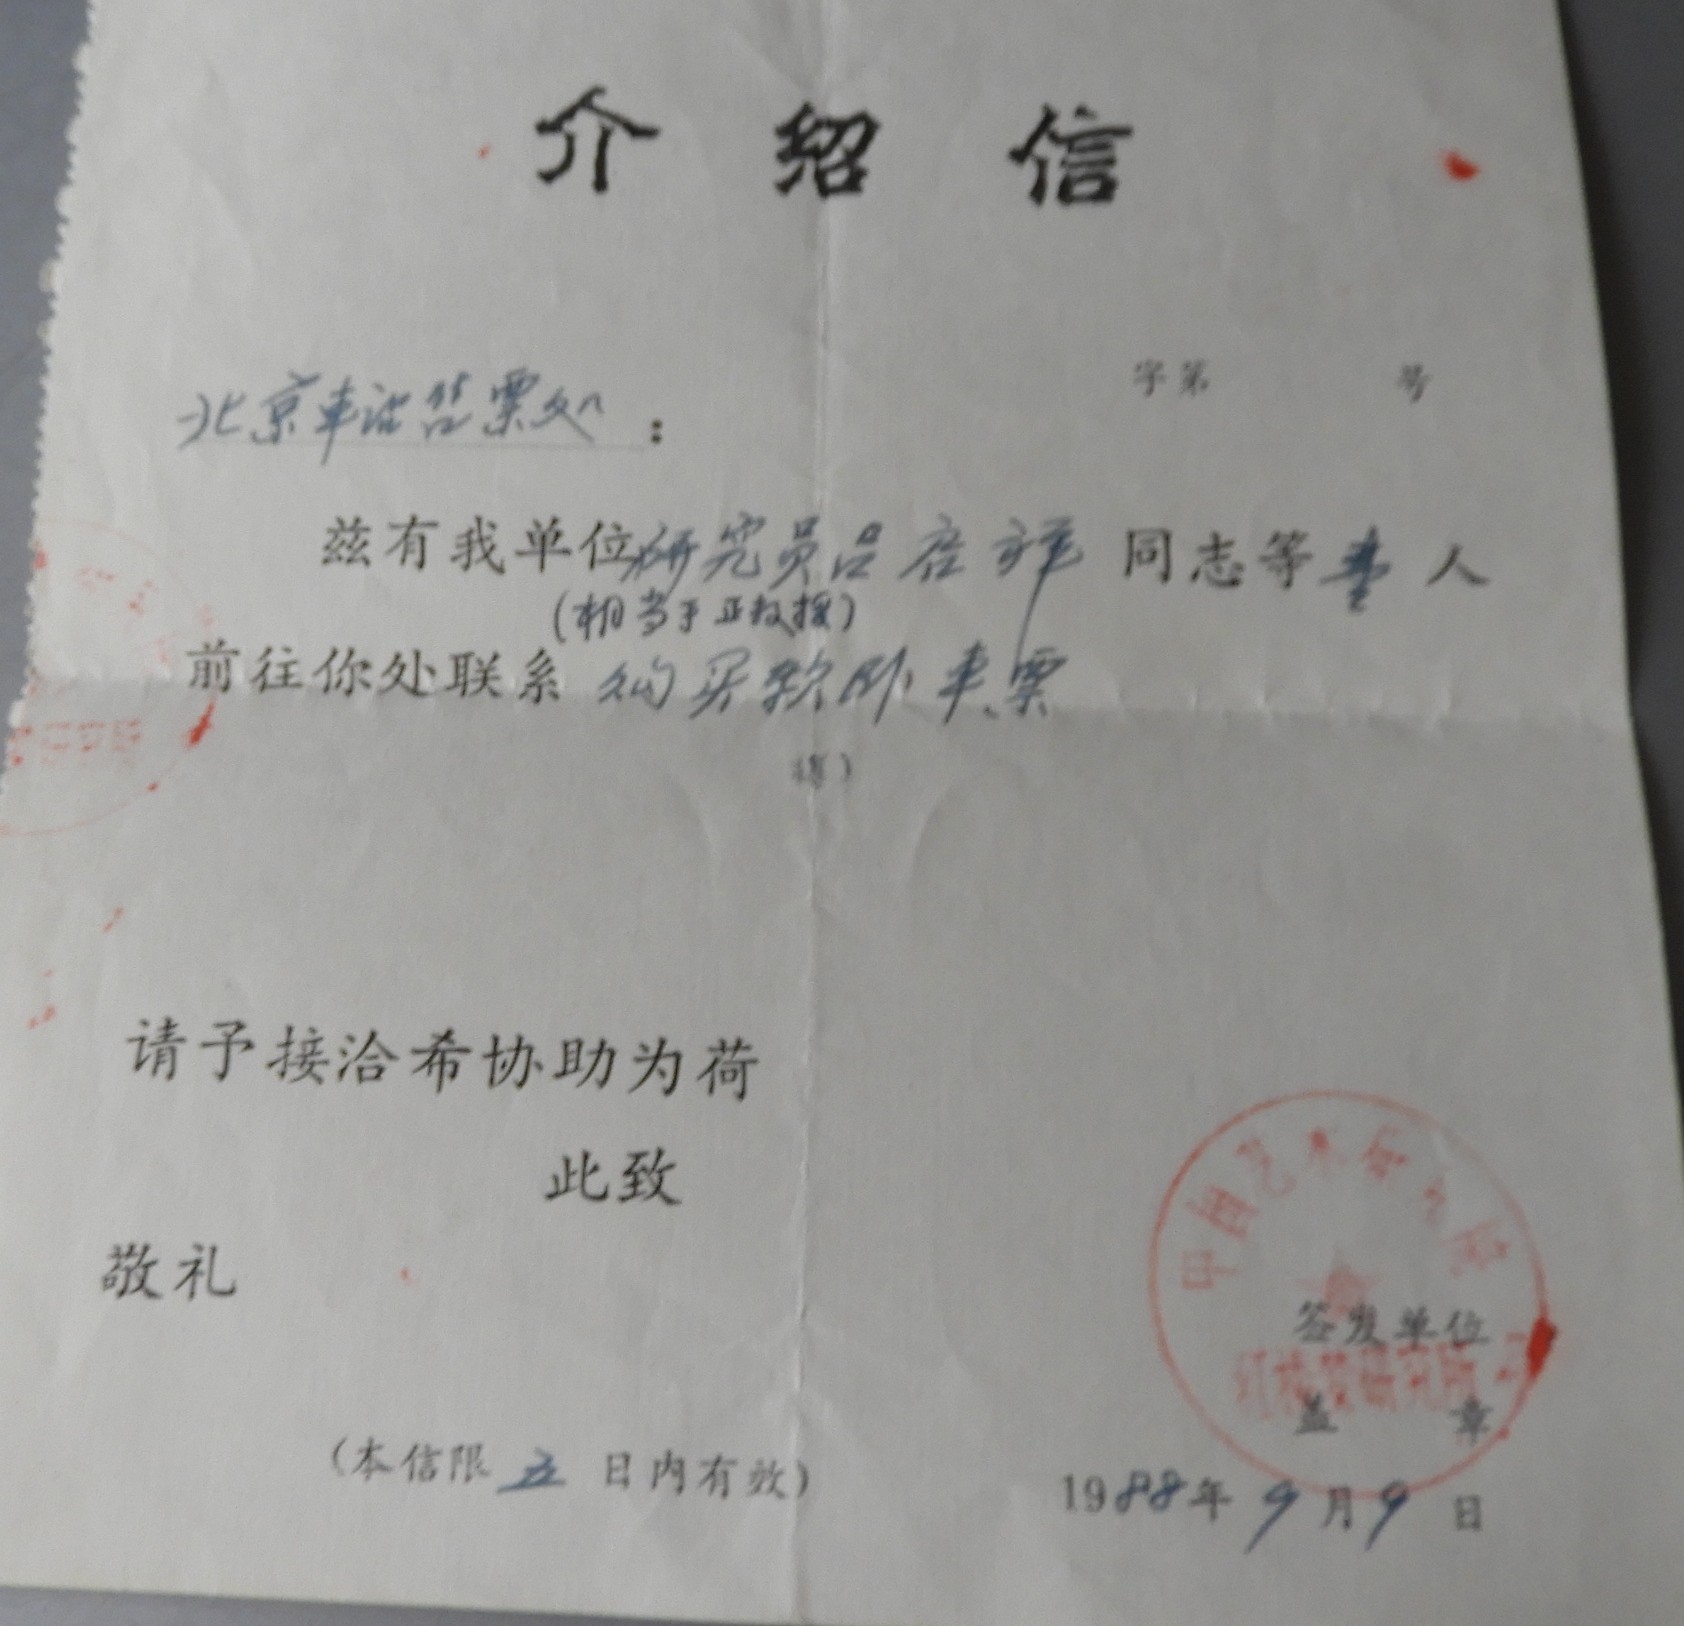 介绍信
字第 号
北京车站售票处：
兹有我单位研究员吕启祥同志等壹人
(相当于正教授)
前往你处联系购买软卧车票
请予接洽希协助为荷
此致
敬礼
中国艺术研究院
签发单位
红楼梦研究所
盖 章
(本信限五日内有效)
1988年9月9日